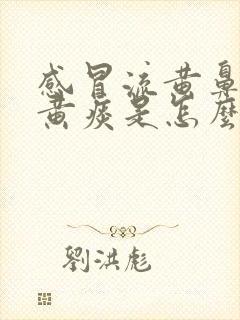 感冒流黄鼻
黄痰是怎麽
劉洪彪